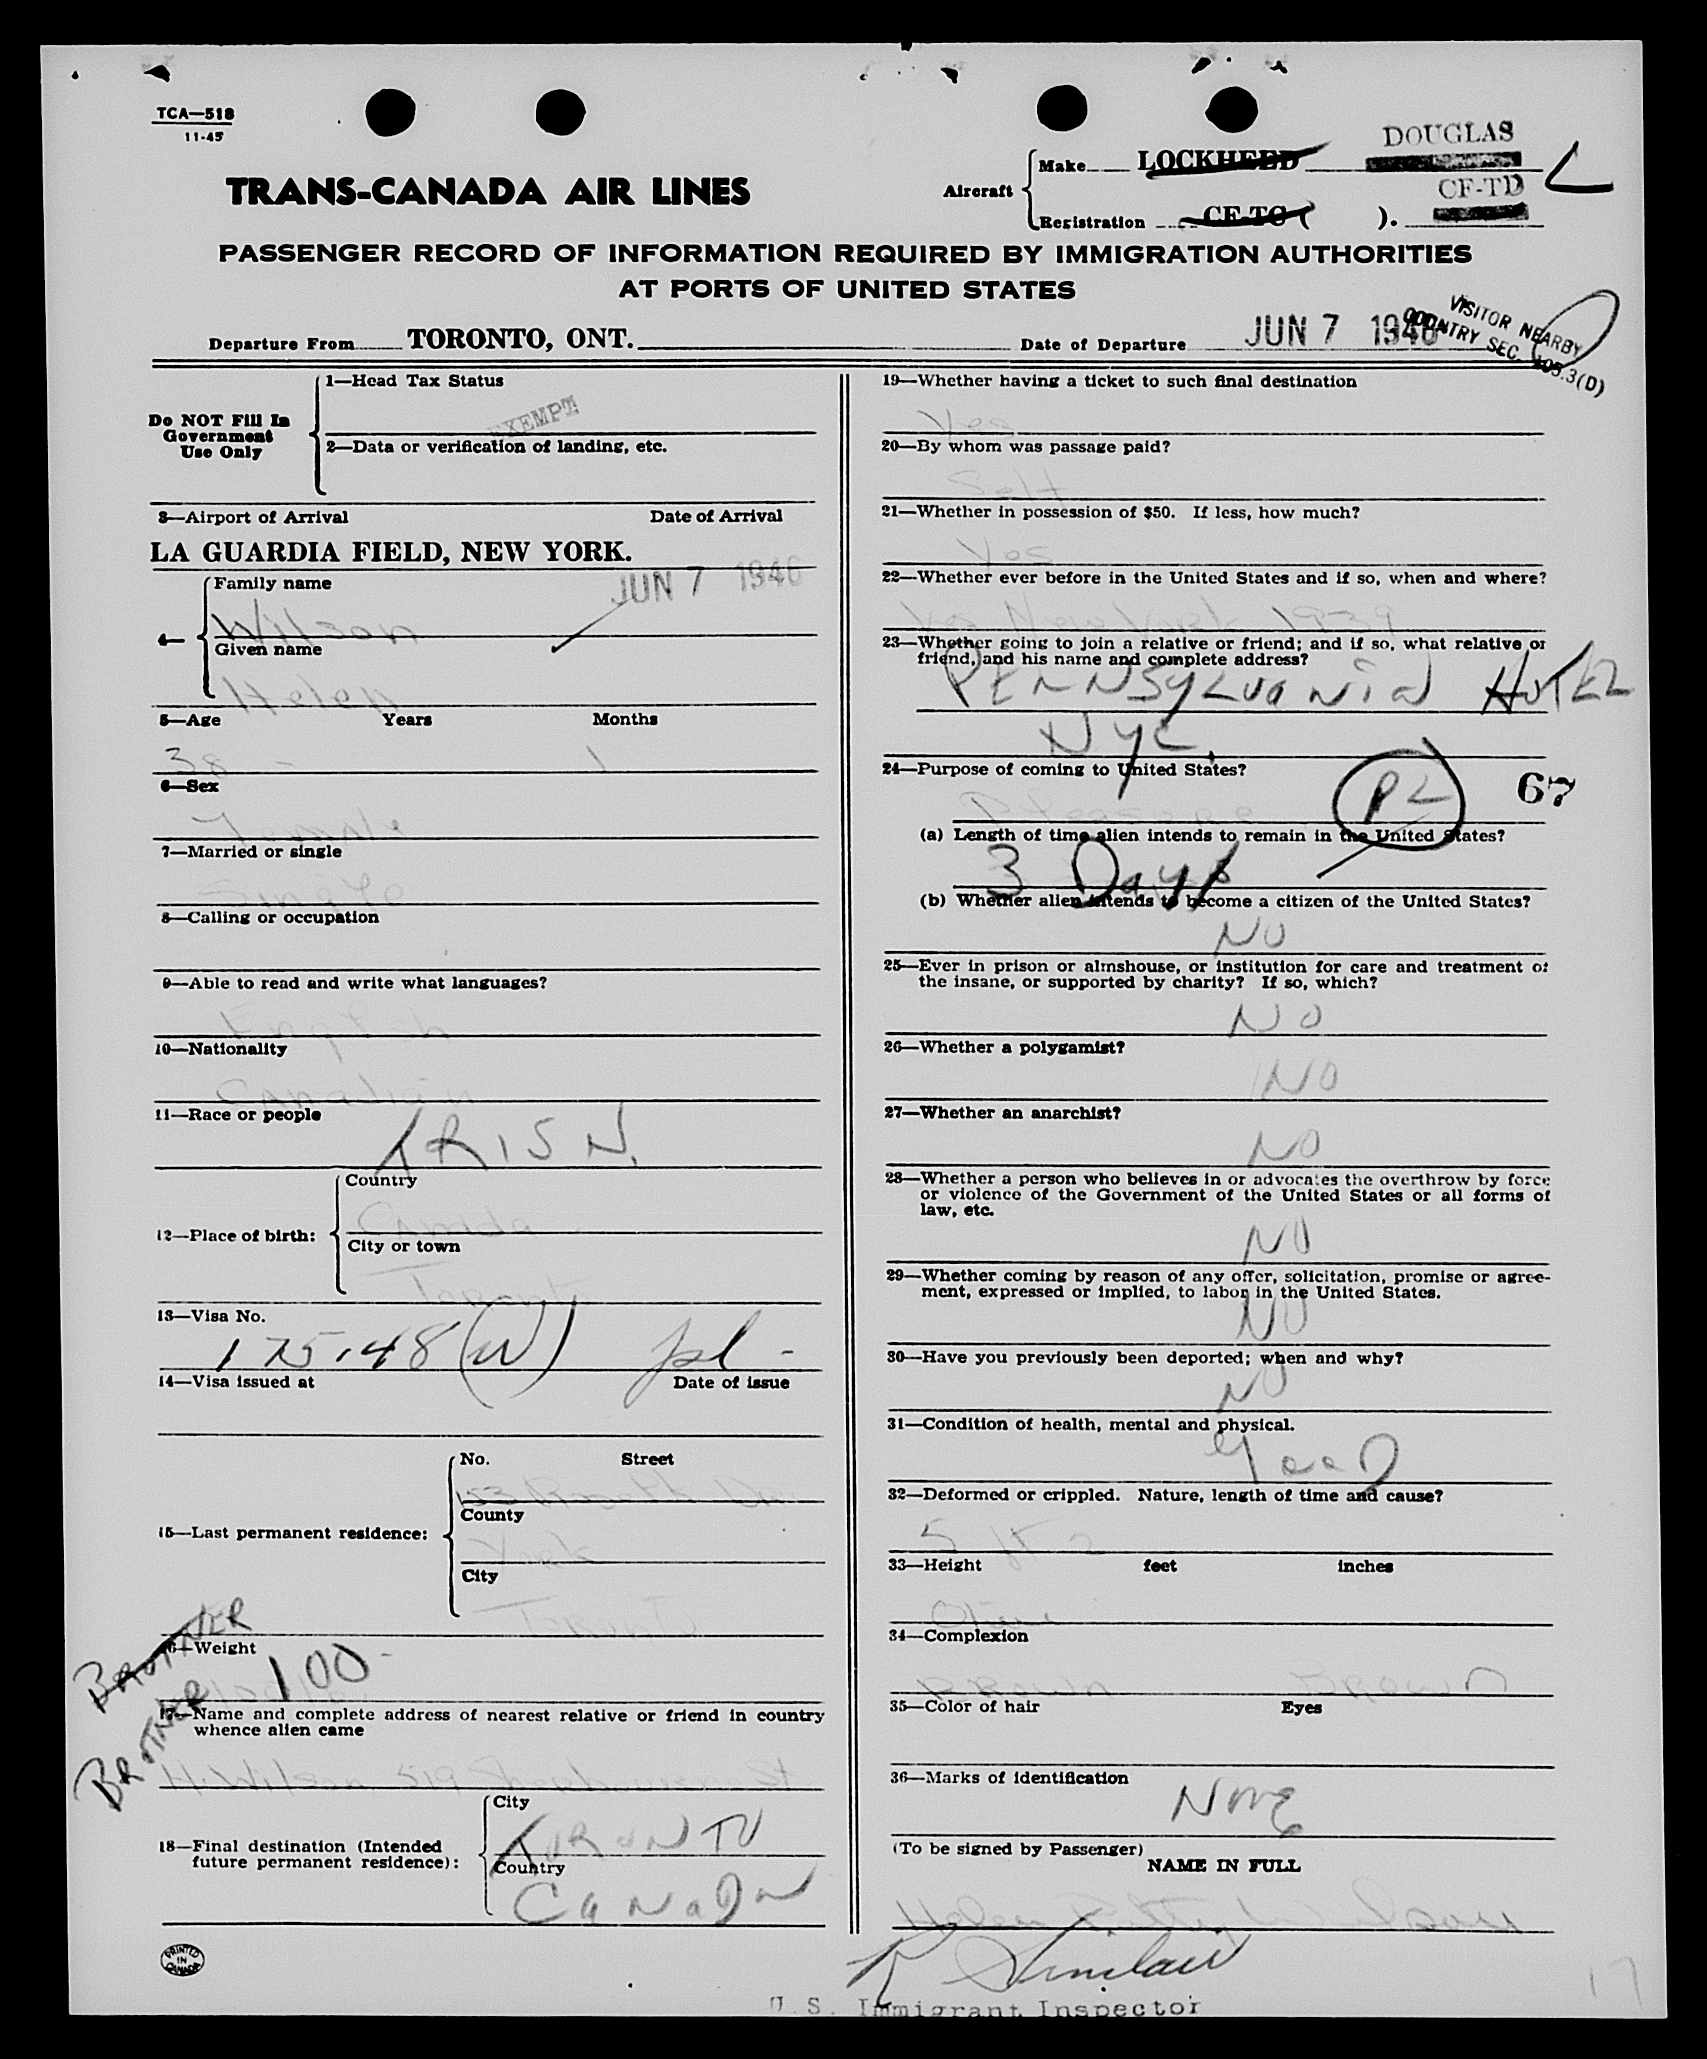 TCA—518
11-45
TRANS-CANADA AIR LINES
Aircraft
Make LOCKHEED DOUGLAS
Registration CF-TC ( ). CF-TD
PASSENGER RECORD OF INFORMATION REQUIRED BY IMMIGRATION AUTHORITIES
AT PORTS OF UNITED STATES
Departure From TORONTO, ONT. Date of Departure JUN 7 1946
VISITOR NEARBY
COUNTRY SEC. 105.3(D)
Do NOT Fill In
Government
Use Only
1—Head Tax Status
EXEMPT
2—Data or verification of landing, etc.
3—Airport of Arrival Date of Arrival
LA GUARDIA FIELD, NEW YORK.
JUN 7 1946
4—
Family name
Wilson
Given name
Helen
5—Age Years Months
38 - 1
6—Sex
Female
7—Married or single
Single
8—Calling or occupation
9—Able to read and write what languages?
English
10—Nationality
Canadian
11—Race or people
IRISH
12—Place of birth:
Country
Canada
City or town
Toronto
13—Visa No.
175.48 (W)
14—Visa issued at Date of issue
15—Last permanent residence:
No. Street
153
County
York
City
Toronto
16—Weight
100-
BROTHER
BROTHER
17—Name and complete address of nearest relative or friend in country
whence alien came
H. Wilson 519 St
18—Final destination (Intended
future permanent residence):
City
TORONTO
Country
CANADA
PRINTED
IN
CANADA
19—Whether having a ticket to such final destination
Yes
20—By whom was passage paid?
Self
21—Whether in possession of $50. If less, how much?
Yes
22—Whether ever before in the United States and if so, when and where?
Yes New York 1939
23—Whether going to join a relative or friend; and if so, what relative or
friend, and his name and complete address?
PENNSYLVANIA HOTEL
NYC.
24—Purpose of coming to United States?
Pleasure
PL
67
(a) Length of time alien intends to remain in the United States?
3 Days
(b) Whether alien intends to become a citizen of the United States?
NO
25—Ever in prison or almshouse, or institution for care and treatment of
the insane, or supported by charity? If so, which?
NO
26—Whether a polygamist?
NO
27—Whether an anarchist?
NO
28—Whether a person who believes in or advocates the overthrow by force
or violence of the Government of the United States or all forms of
law, etc.
NO
29—Whether coming by reason of any offer, solicitation, promise or agree-
ment, expressed or implied, to labor in the United States.
NO
30—Have you previously been deported; when and why?
NO
31—Condition of health, mental and physical.
Good
32—Deformed or crippled. Nature, length of time and cause?
5 ft 2
33—Height feet inches
Olive
34—Complexion
Brown Brown
35—Color of hair Eyes
36—Marks of identification
None
(To be signed by Passenger)
NAME IN FULL
Helen Wilson
R Sinclair
U.S. Immigrant Inspector
17